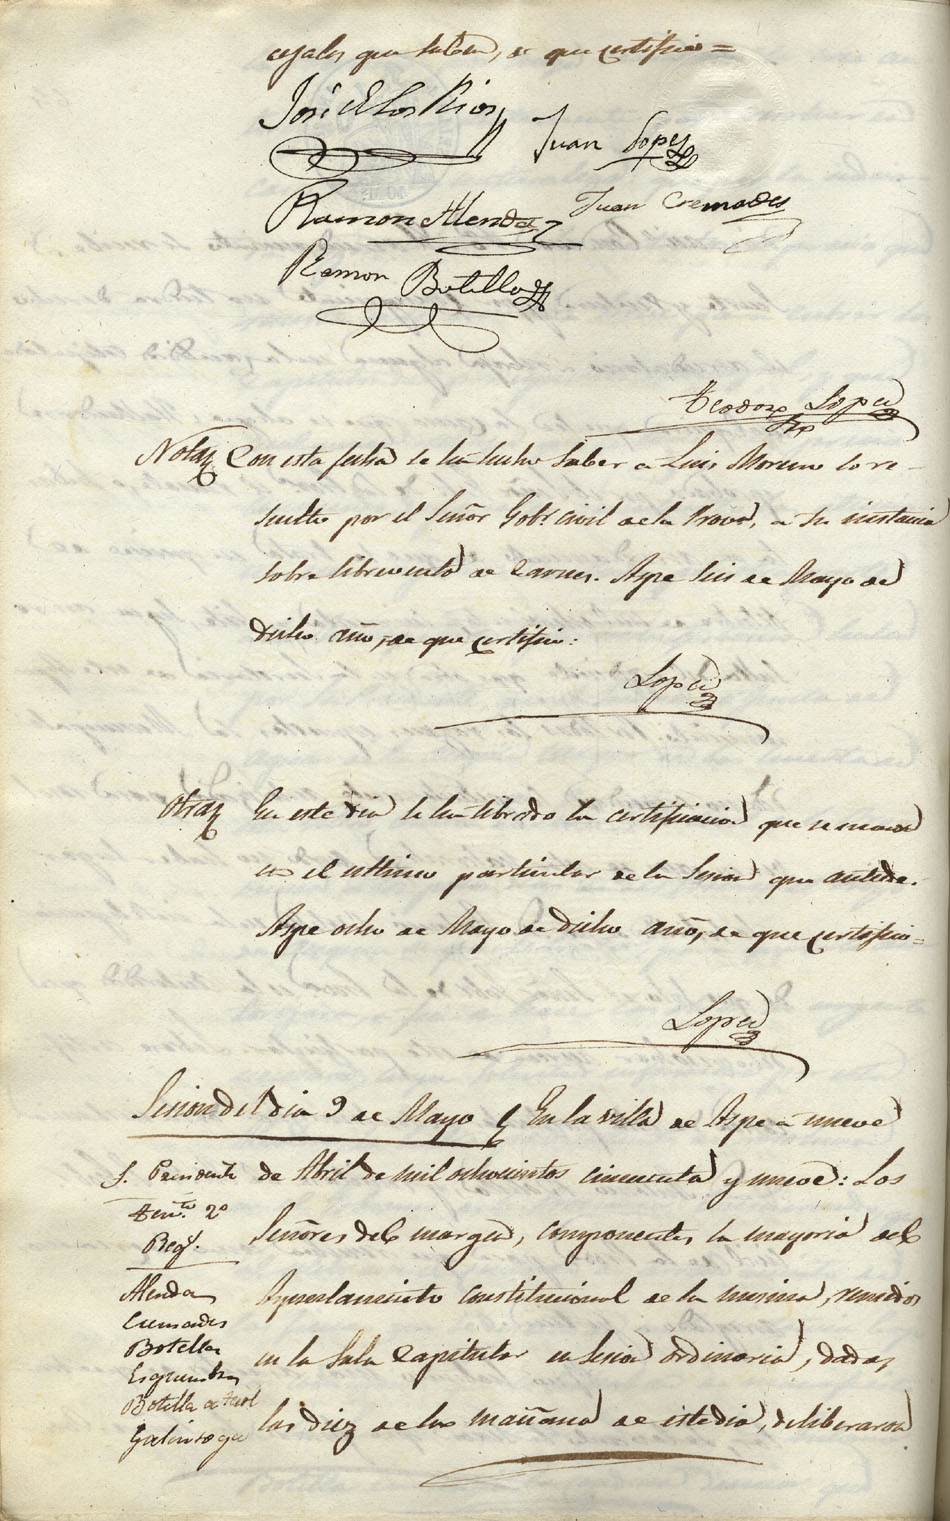 cejales que saben, de que certifico =
José de los Rios
Juan Lopez
Ramon Alenda
Juan Cremades
Ramon Botella
Teodoro Lopez
Srio
Nota Con esta fecha se ha hecho saber a Luis Moreno lo re-
suelto por el Señor Gobr. Civil de la Prova, a su instancia
sobre de carnes. Aspe seis de Mayo de
dicho año, de que certifico:
Lopez
Otra En este dia se ha librado la certificacion que se manda
en el ultimo particular de la Sesion que antecede.
Aspe ocho de Mayo de dicho año, de que certifico =
Lopez
Sesion del dia 9 de Mayo En la villa de Aspe a nueve
S. Presidente de Abril de mil ochocientos cincuenta y nueve: Los
Tente. 2º
Señores del margen, componentes la mayoria del
Regs.
Alenda Ayuntamiento constitucional de la misma, reunidos
Cremades
Botella en la Sala Capitular en Sesion ordinaria, dadas
Esquembre
Botella
las diez de la mañana de este dia, deliberaron
Galinsoga